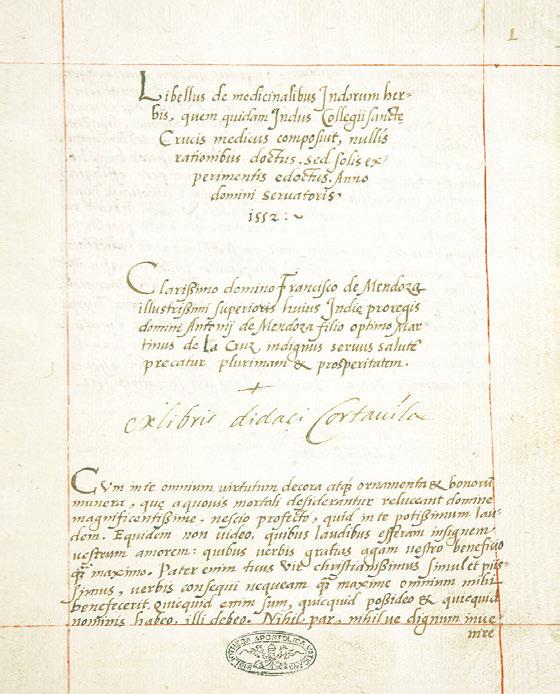 1
Libellus de medicinalibus Indorum her-
bis, quem quidam Indus Collegii sanctę
Crucis medicus composuit, nullis
rationibus doctus, sed solis ex-
perimentis edoctus. Anno
domini servatoris
1552:~
Clarißimo domino Francisco de Mendoza
illustrißimi superioris huius Indię proregis
domini Antonij de Mendoza filio optimo Mar-
tinus de la Cruz indignus servus salutē
precatur plurimam & prosperitatem.
ex libris didaci Cortavila
CVm in te omnium virtutum decora atq; ornamenta & bonorū
munera, quę a quovis mortali desiderantur reluceant domine
magnificentißime, nescio profecto, quid in te potißimum lau-
dem. Equidem non video, quibus laudibus efferam insignem
vestrum amorem: quibus verbis gratias agam vestro beneficio
maximo. Pater enim tuus vir christianißimus simul et piis-
simus, verbis consequi nequeam maxime omnium mihi
benefecerit. quicquid enim sum, quicquid poßideo & quicquid
nominis habeo, illi debeo. Nihil par, nihilve dignum inve-
nire
BIBLIOTHECA APOSTOLICA VATICANA